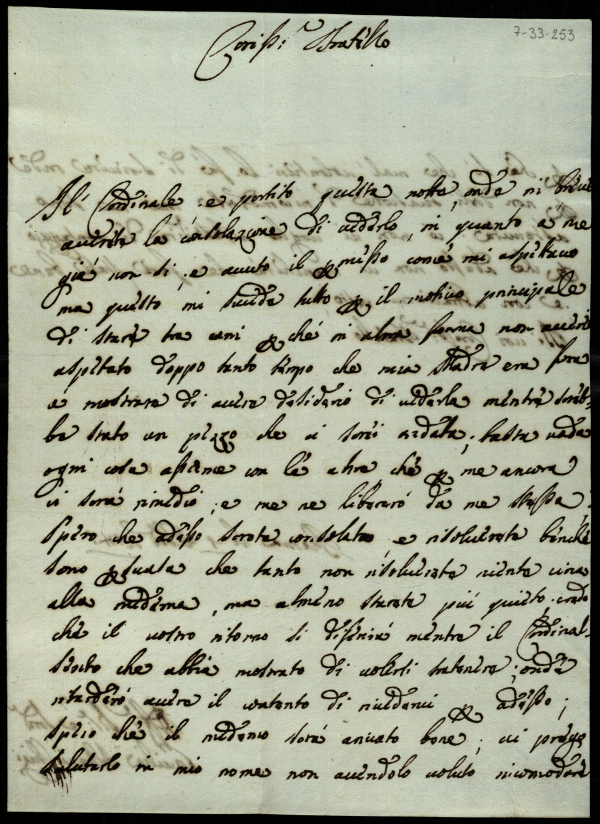 7-33-253
Cariss.º Fratello
Il Cardinale è partito questa notte, onde in breve
averete la consolazione di vederlo, in quanto a me
già non si è avuto il permisso come mi aspettavo
ma questo mi succede tutto per il motivo principale
di stare tra cani perché in altra forma non averei
aspetato doppo tanto tempo che mia Madre era fora
a mostrare di avere desiderio di vederla mentre sareb-
be stato un pezzo che ci sarei andata, basta vada
ogni cosa assieme con le altre che per me ancora
ci sarà rimedio, e me ne liberarò da me stessa.
Spero che adesso sarete consolato e risolverete benche
sono persuasa che tanto non risolverete niente circa
alla medema, ma almeno starete più quieto, credo
che il vostro ritorno si diferirà mentre il Cardinal
sento che abbia mostrato di volerli tratenere, onde
ritarderò avere il contento di rivedervi per adesso;
spero che il medemo sarà arivato bene, vi prego
salutarlo in mio nome non avendolo voluto incomodare